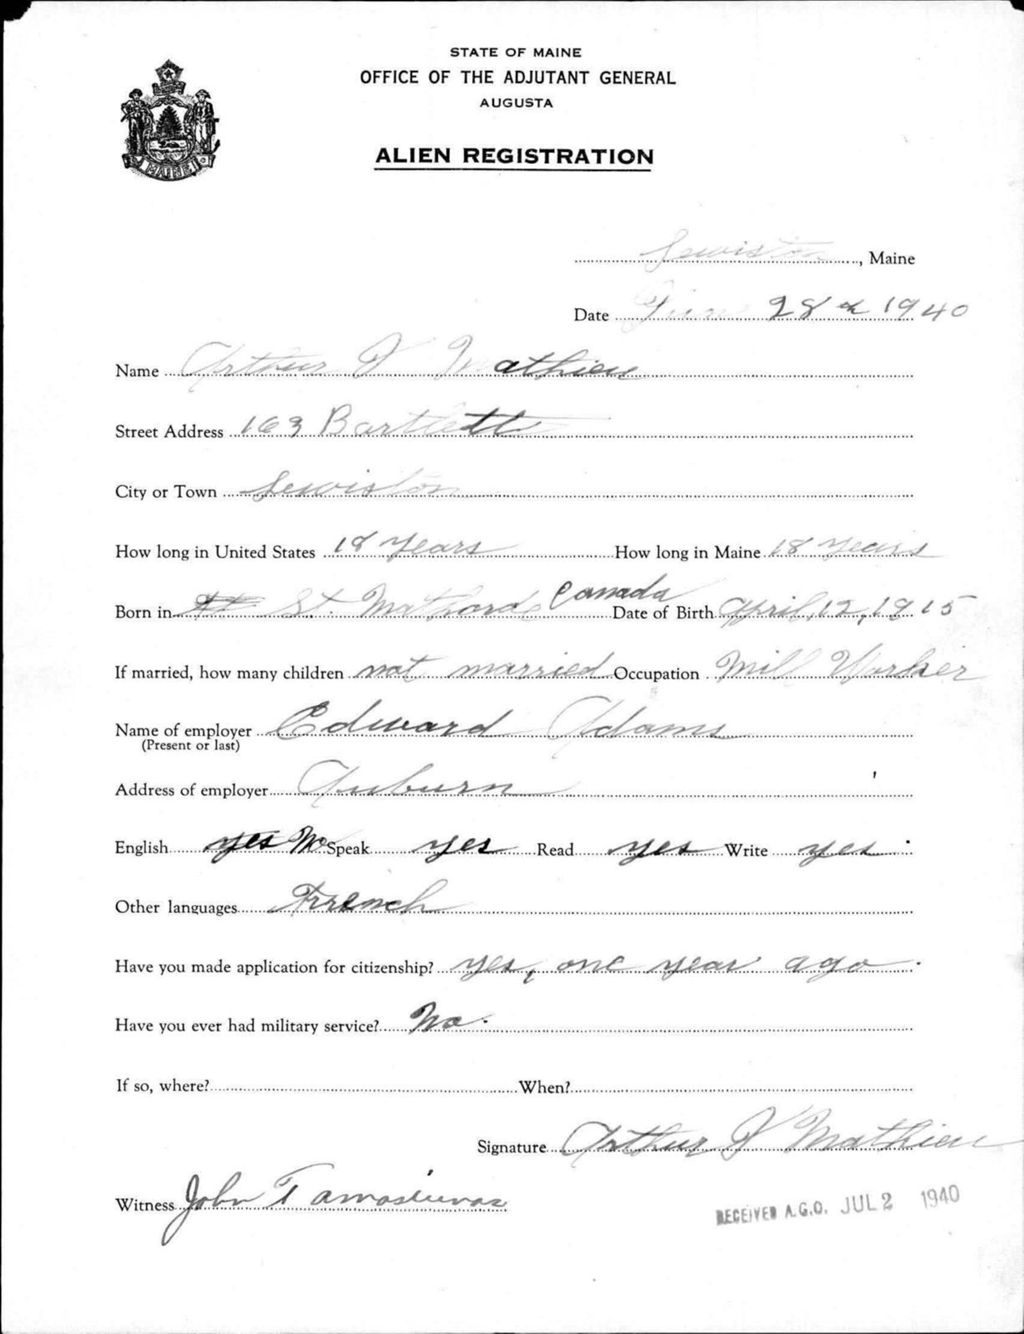 STATE OF MAINE
OFFICE OF THE ADJUTANT GENERAL
AUGUSTA
ALIEN REGISTRATION
MAINE
Lewiston, Maine
Date June 28th 1940
Name Arthur J Mathieu
Street Address 163 Bartlett
City or Town Lewiston
How long in United States 18 years How long in Maine 18 years
Born in St. Canada Date of Birth April, 12, 1915
If married, how many children not married Occupation Mill Worker
Name of employer Edward Adams
(Present or last)
Address of employer Auburn
English yes No Speak yes Read yes Write yes.
Other languages French
Have you made application for citizenship? yes, one year ago.
Have you ever had military service? No.
If so, where? When?
Signature Arthur J Mathieu
Witness John
RECEIVED A.G.O. JUL 2 1940